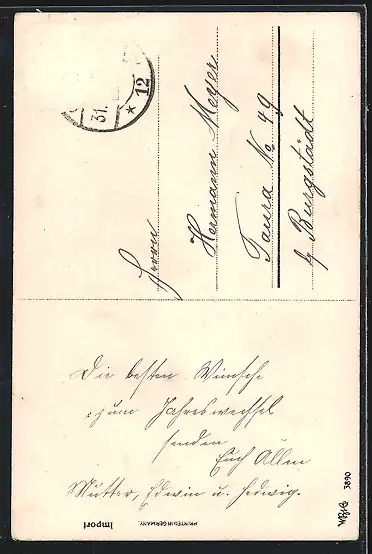 Herrn
Hermann Meyer
Taura No 49
b/ Burgstädt
31.
* 12
Die besten Wünsche
zum Jahreswechsel
senden
Euch Allen
Mutter, Edwin u. Hedwig.
PRINTED IN GERMANY.
Import
3890